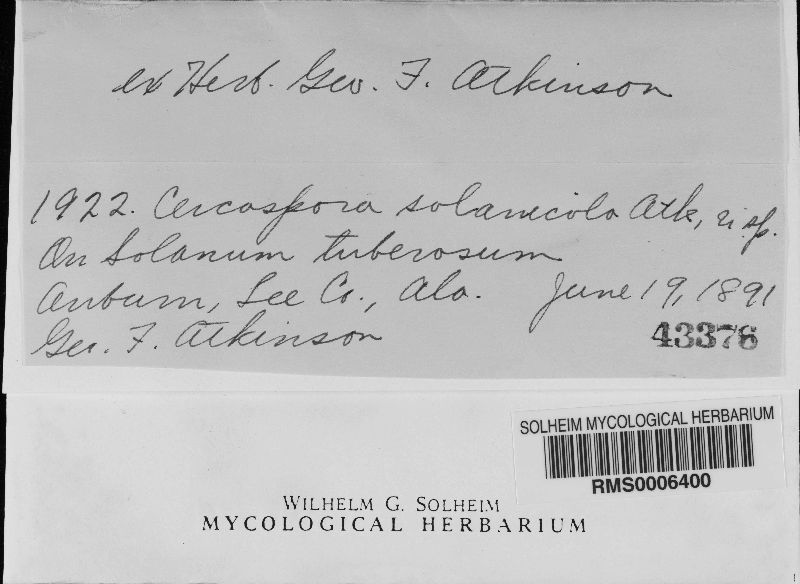 ex Herb. Geo. F. Atkinson
1922. Cercospora solanicola Atk, n. sp.
On Solanum tuberosum
Auburn, Lee Co., Ala. June 19, 1891
Geo. F. Atkinson
43376
SOLHEIM MYCOLOGICAL HERBARIUM
RMS0006400
WILHELM G. SOLHEIM
MYCOLOGICAL HERBARIUM